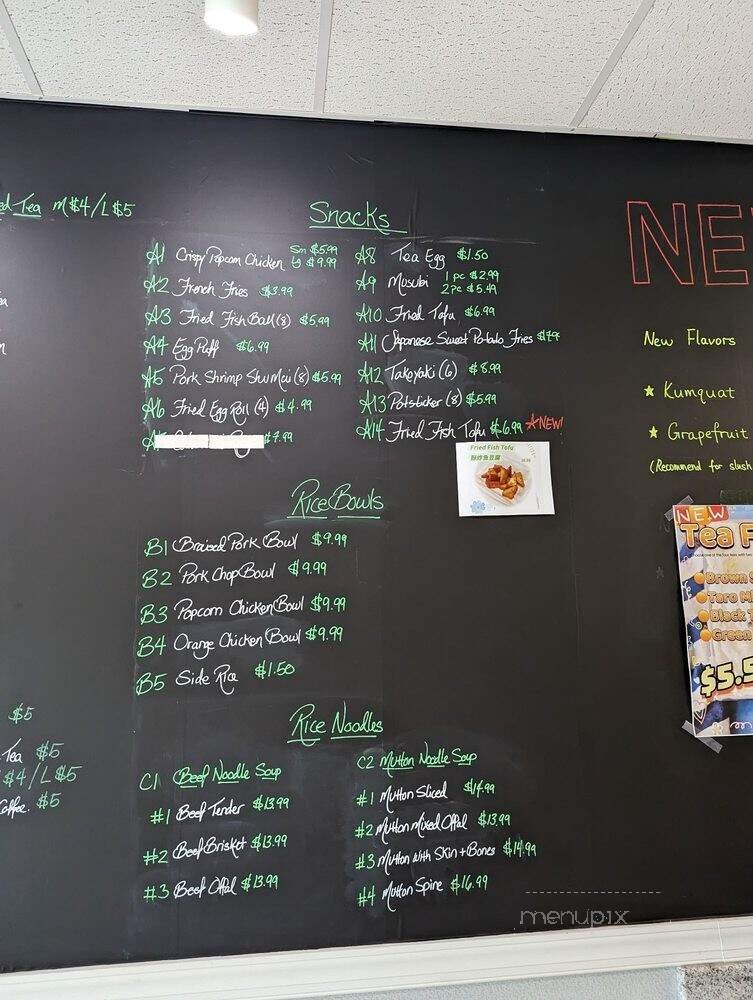 ed Tea M$4/L$5
Snacks
A1 Crispy Popcorn Chicken Sm $5.99 Lg $9.99
A2 French Fries $3.99
A3 Fried Fish Ball (8) $5.99
A4 Egg Puff $6.99
A5 Pork Shrimp Shu Mai (8) $5.99
A6 Fried Egg Roll (4) $4.99
$7.99
A8 Tea Egg $1.50
A9 Musubi 1 pc $2.99
2 pc $5.49
A10 Fried Tofu $6.99
A11 Japanese Sweet Potato Fries
A12 Takoyaki (6) $8.99
A13 Potsticker (8) $5.99
A14 Fried Fish Tofu $6.99 NEW!
Fried Fish Tofu
Rice Bowls
B1 Braised Pork Bowl $9.99
B2 Pork Chop Bowl $9.99
B3 Popcorn Chicken Bowl $9.99
B4 Orange Chicken Bowl $9.99
B5 Side Rice $1.50
Rice Noodles
C1 Beef Noodle Soup
#1 Beef Tender $13.99
#2 Beef Brisket $13.99
#3 Beef Offal $13.99
C2 Mutton Noodle Soup
#1 Mutton Sliced $14.99
#2 Mutton Mixed Offal $13.99
#3 Mutton with Skin + Bones $14.99
#4 Mutton Spine $16.99
$5
Tea $5
$4/L$5
Coffee. $5
NE
New Flavors
★ Kumquat
★ Grapefruit
(Recommend for slush
NEW
Tea F
Brown
Taro M
Black
Green
$5.5
menupix